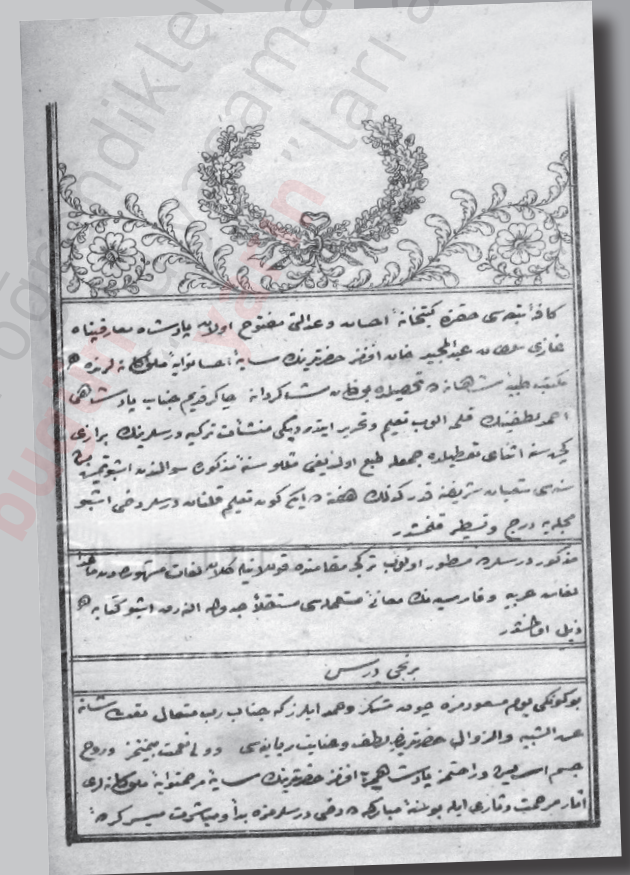 كافهٔ تبعه‌سى حقنده كتبخانهٔ احسان و عدالتى مفتوح اولان پادشاه معارفپناه
غازى سلطان عبدالمجيد خان افندمز حضرتلرينك سايهٔ احسانوايهٔ ملوكانه‌لرنده
مكتب طبيهٔ شاهانه‌ده تحصيلده بولنان شاكردانه چاكر قديم جناب پادشاهى
احمد لطفينك قلمه آلوب تعليم و تحرير ايتدرديكى منشآت تركيه درسلرينك برازى
كچن سنه اثناى تعطيلده جمعله طبع اولنديغى مثللو سنهٔ مذكوره شوالندن اشبو يتمش
سنه‌سى شعبان شريفنه قدر كونلك هفته‌ده ايكى كون تعليم قلنان درسلر دخى اشبو
مجلده درج و تسطير قلنمشدر
مذكور درسلرده مسطور اولوب تركجه مقامنده قوللانيلان لغات مشهوره‌دن ماعدا
لغات عربيه و فارسيه‌نك معانئ مستعمله‌سى مستقلاً جدوله النه‌رق اشبو كتابه
ذيل اولنمشدر
برنجى درس
بوكونكى يوم مسعودمزه چوق شكر و حمد ايلرز كه جناب رب متعال تقدست شانه
عن الشبيه والزوال حضرتلرينك لطف و عنايت ربانيسى و ولى نعمت بيمنتمز و روح
جسم اسايش و راحتمز پادشاهمز افندمز حضرتلرينك سايهٔ مرحمتوايهٔ ملوكانه‌لرى
آثار مرحمت وقارى ايله بو سنهٔ مباركه‌ده دخى درسلرمزه بدأ و مباشرت ميسر كرده
بugün
öğrendikler
yarın
ları